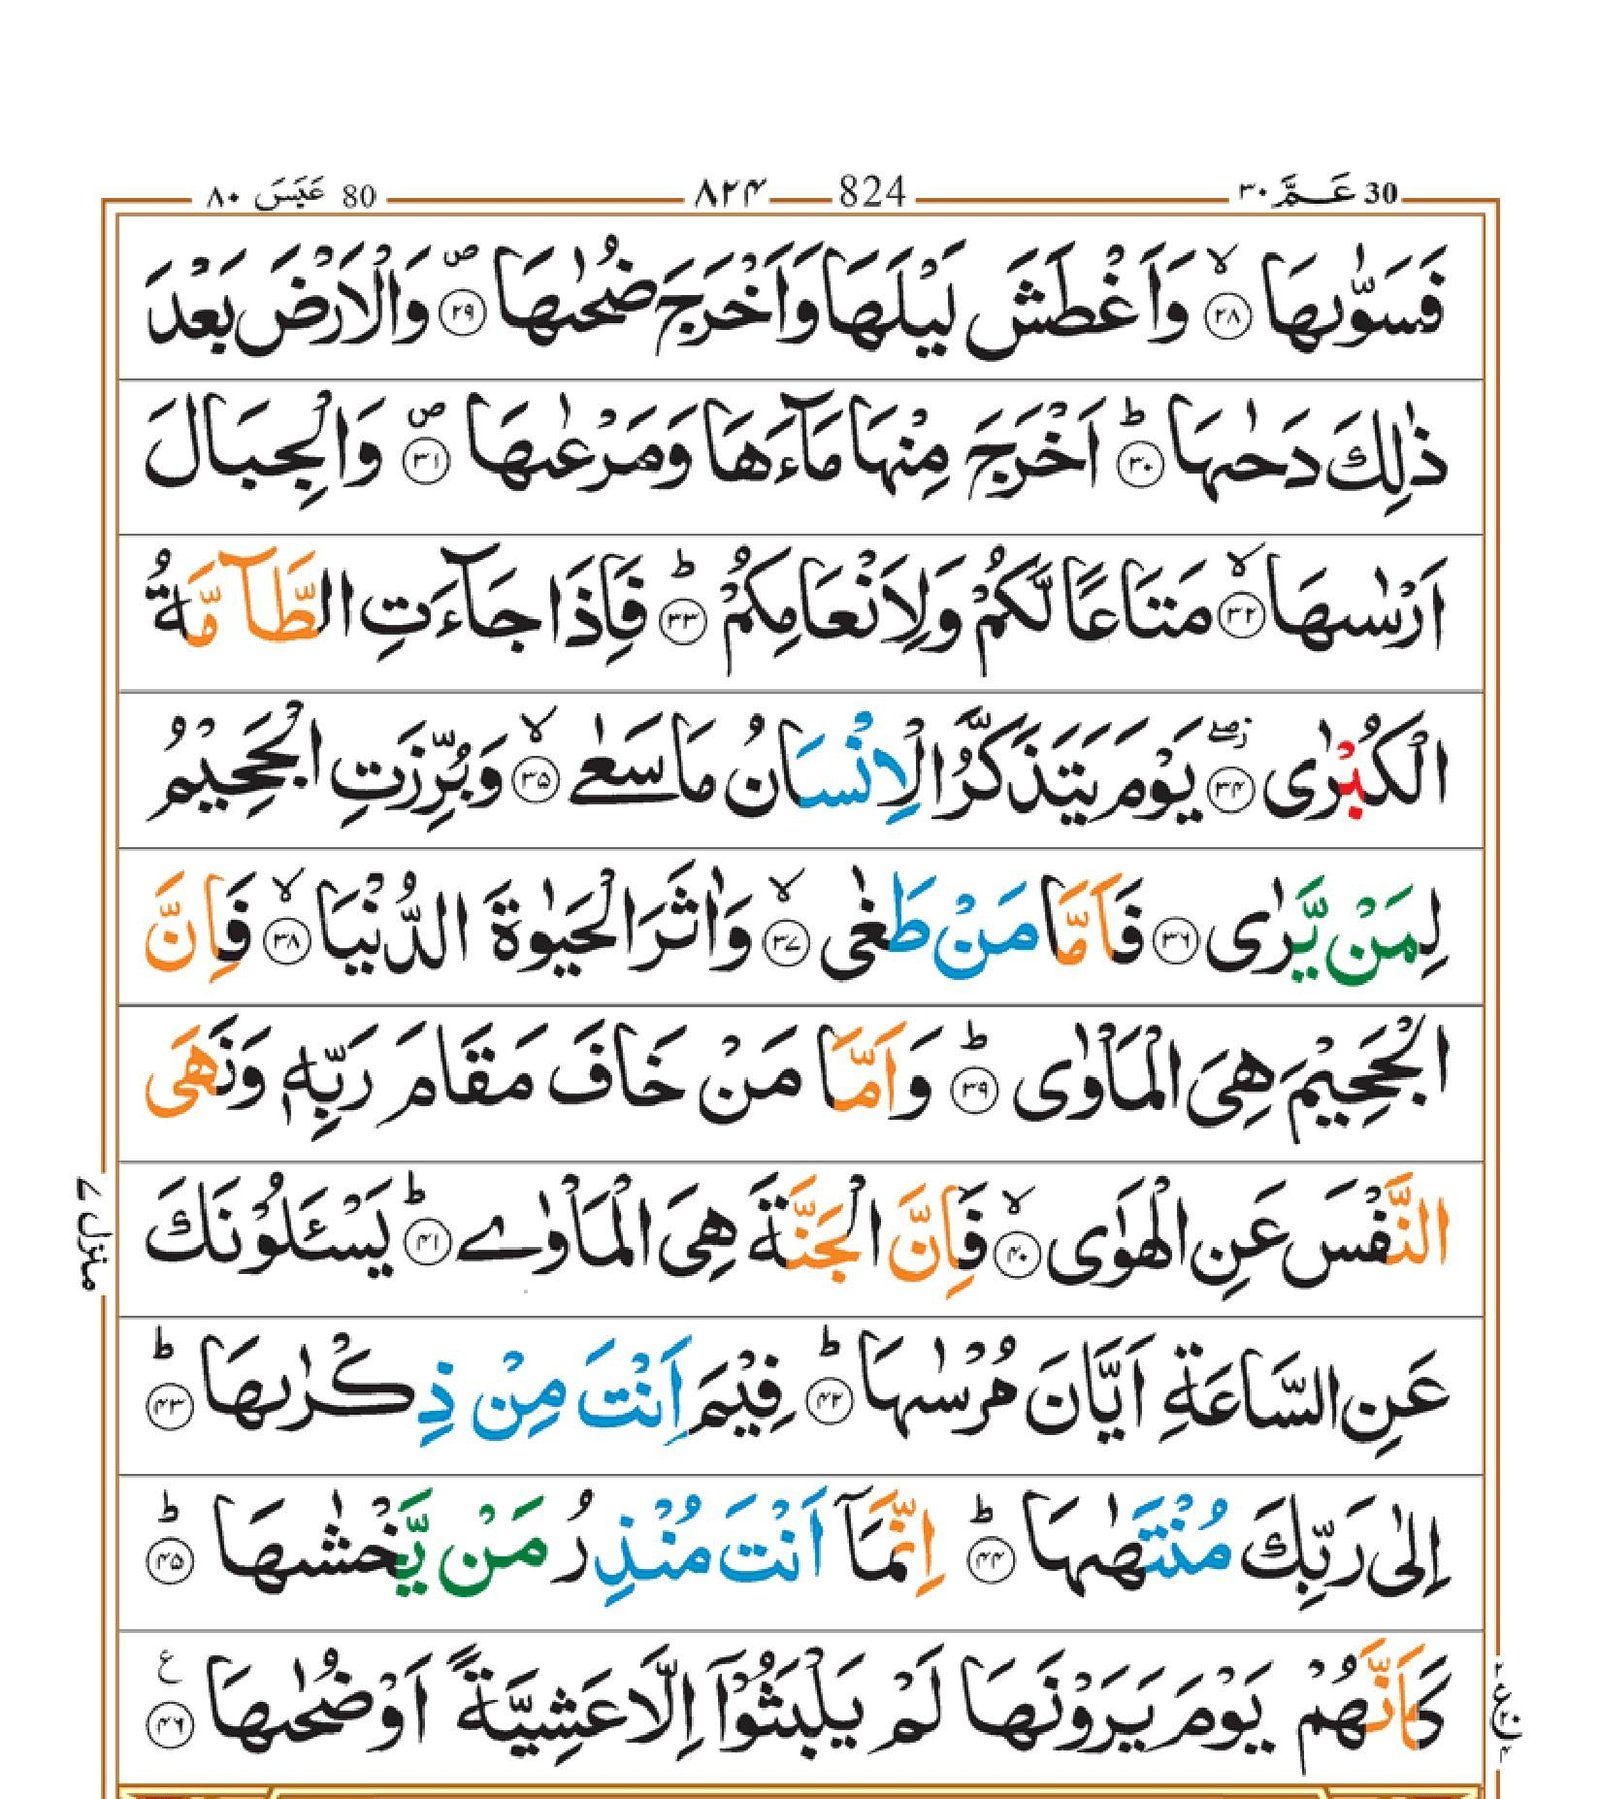 30 عَمَّ ٣٠ 824 ٨٢۴ 80 عَبَسَ ٨٠
فَسَوّٰىهَا ۙ‏﴿۲۸﴾ وَاَغْطَشَ لَيْلَهَا وَاَخْرَجَ ضُحٰىهَا ۪‏﴿۲۹﴾ وَالْاَرْضَ بَعْدَ
ذٰلِكَ دَحٰىهَا ؕ‏﴿۳۰﴾ اَخْرَجَ مِنْهَا مَآءَهَا وَمَرْعٰىهَا ۪‏﴿۳۱﴾ وَالْجِبَالَ
اَرْسٰىهَا ۙ‏﴿۳۲﴾ مَتَاعًا لَّكُمْ وَلِاَنْعَامِكُمْ ؕ‏﴿۳۳﴾ فَاِذَا جَآءَتِ الطَّآمَّةُ
الْكُبْرٰى ۖ‏﴿۳۴﴾ يَوْمَ يَتَذَكَّرُ الْاِنْسَانُ مَا سَعٰى ۙ‏﴿۳۵﴾ وَبُرِّزَتِ الْجَحِيْمُ
لِمَنْ يَّرٰى ﴿۳۶﴾ فَاَمَّا مَنْ طَغٰى ۙ‏﴿۳۷﴾ وَاٰثَرَ الْحَيٰوةَ الدُّنْيَا ۙ‏﴿۳۸﴾ فَاِنَّ
الْجَحِيْمَ هِىَ الْمَاْوٰى ؕ‏﴿۳۹﴾ وَاَمَّا مَنْ خَافَ مَقَامَ رَبِّهٖ وَنَهَى
النَّفْسَ عَنِ الْهَوٰى ۙ‏﴿۴۰﴾ فَاِنَّ الْجَنَّةَ هِىَ الْمَاْوٰے ؕ‏﴿۴۱﴾ يَسْـَٔلُوْنَكَ
عَنِ السَّاعَةِ اَيَّانَ مُرْسٰىهَا ؕ‏﴿۴۲﴾ فِيْمَ اَنْتَ مِنْ ذِكْرٰىهَا ؕ‏﴿۴۳﴾
اِلٰى رَبِّكَ مُنْتَهٰىهَا ؕ‏﴿۴۴﴾ اِنَّمَآ اَنْتَ مُنْذِرُ مَنْ يَّخْشٰىهَا ؕ‏﴿۴۵﴾
كَاَنَّهُمْ يَوْمَ يَرَوْنَهَا لَمْ يَلْبَثُوْٓا اِلَّا عَشِيَّةً اَوْ ضُحٰىهَا ﴿۴۶﴾ ع
منزل ۷